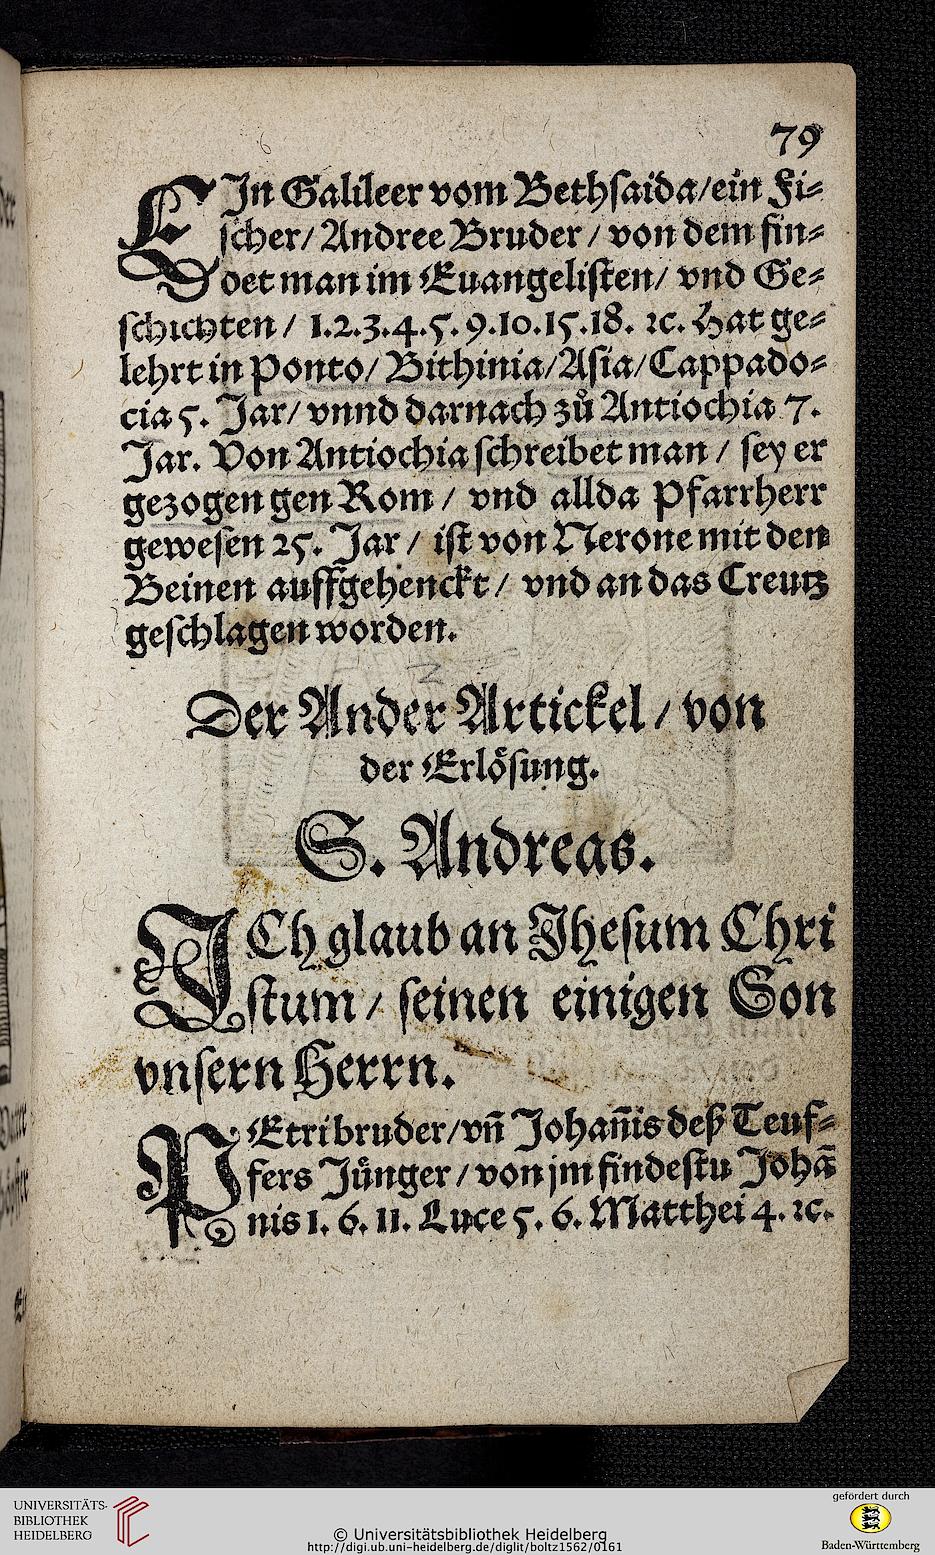 79
EIn Galileer vom Bethsaida/ein Fi⸗
scher/ Andree Bruder / von dem fin⸗
doet man im Euangelisten/ vnd Ge⸗
schichten / 1.2.3.4.5.9.10.15.18. ꝛc. Hat ge⸗
lehrt in Ponto/ Bithinia/Asia/Cappado⸗
cia 5. Jar/ vnnd darnach zů Antiochia 7.
Jar. Von Antiochia schreibet man / sey er
gezogen gen Rom / vnd allda Pfarrherr
gewesen 25. Jar / ist von Nerone mit den
Beinen auffgehenckt / vnd an das Creutz
geschlagen worden.
Der Ander Artickel / von
der Erlösung.
S. Andreas.
ICh glaub an Jhesum Chri
stum / seinen einigen Son
vnsern Herrn.
PEtri bruder/vn̄ Johan̄is deß Teuf⸗
fers Jünger / von jm findestu Johā
nis 1. 6. 11. Luce 5. 6. Matthei 4. ꝛc.
UNIVERSITÄTS-
BIBLIOTHEK
HEIDELBERG
© Universitätsbibliothek Heidelberg
http://digi.ub.uni-heidelberg.de/diglit/boltz1562/0161
gefördert durch
Baden-Württemberg